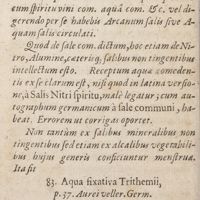 cum spiritu vini com. aquâ com. &c. vel di
gerendo per se habebis Arcanum salis sive A-
quam salis circulati.
Quod de sale com. dictum, hoc etiam de Ni-
tro, Alumine, cæteriq; salibus non tingentibus
intellectum esto. Receptum aquæ comeden-
tis ex se clarum est, nisi quod in latina versio-
ne, à Salis Nitri spiritu, malè legatur; cum au-
tographum germanicum à sale communi, ha-
beat. Errorem ut corrigas oportet.
Non tantùm ex salibus mineralibus non
tingentibus sed etiam ex alcalibus vegetabili-
bus hujus generis conficiuntur menstrua.
Ita fit
83. Aqua fixativa Trithemii,
p. 37. Aurei veller. Germ.